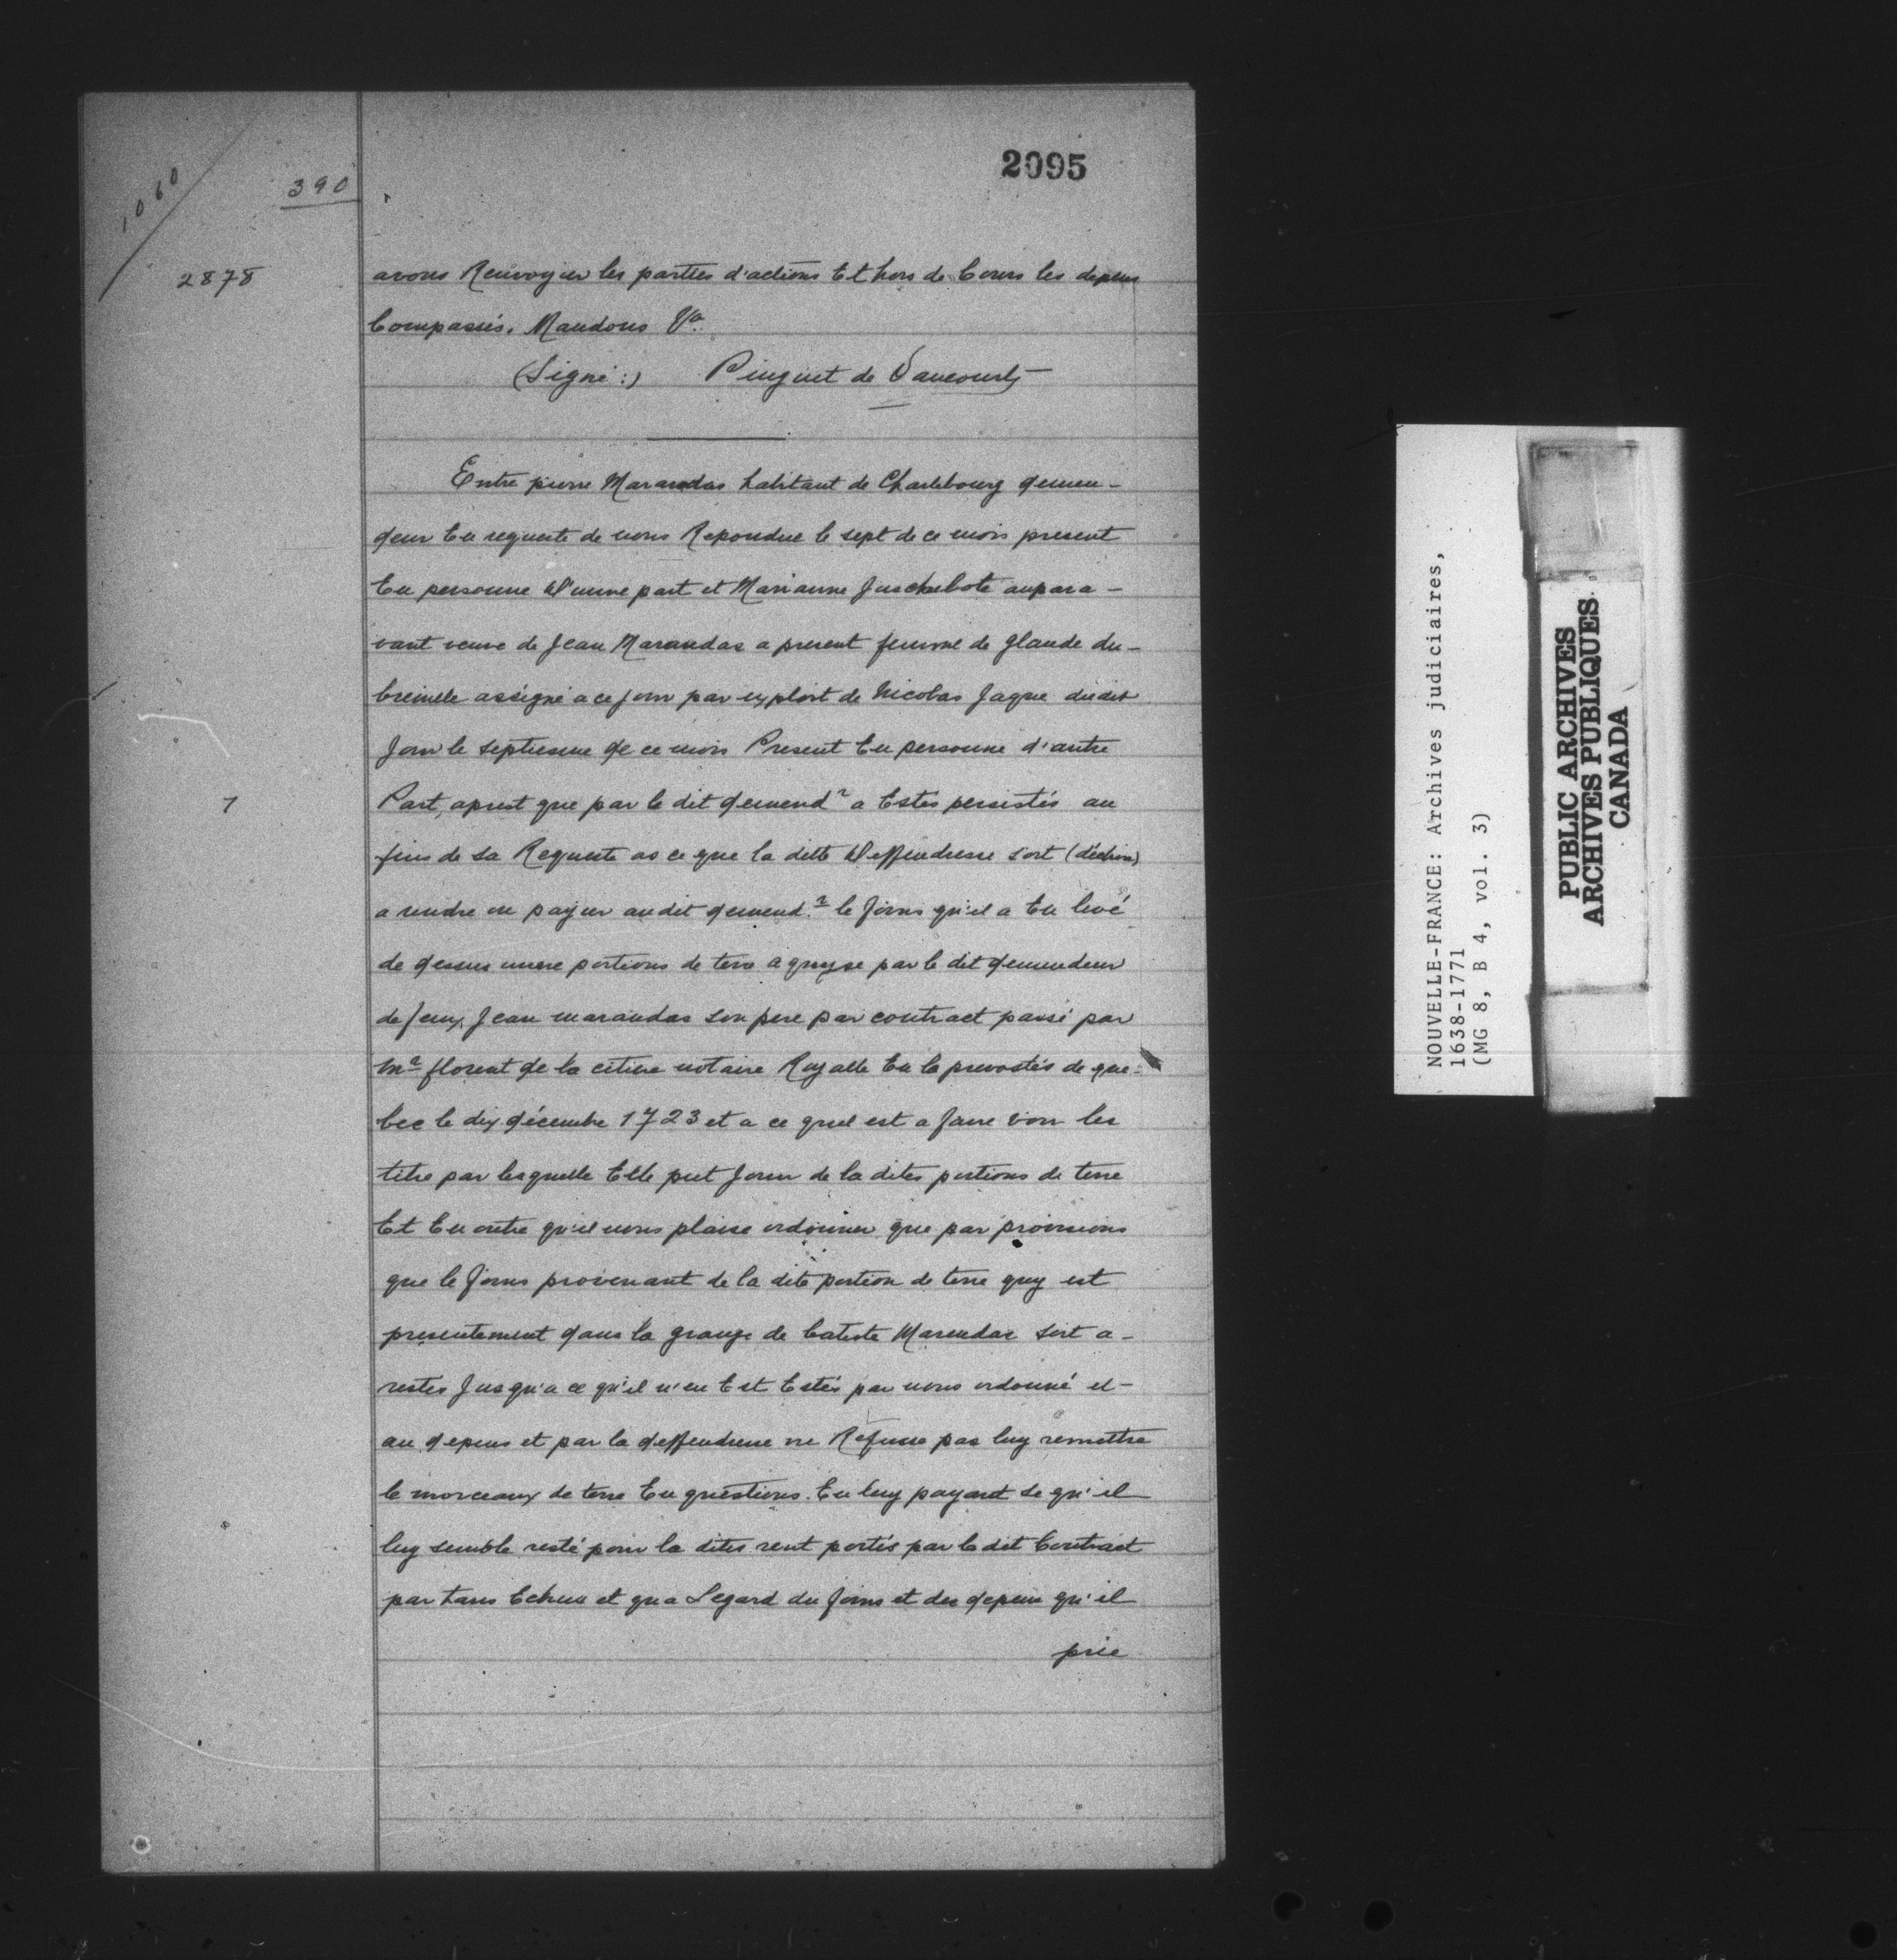 2095
1060
390
2878
avons Renvoyer les parties d'actions Et hors de Cours les depens
Compassés. Mandons &a.
(Signé:) Pinguet de Vaucourts
Entre pierre Marandas habitant de Charlebourg demen-
deur En requeste de nous Repondue le sept de ce mois present
En personne D'unne part et Marianne Juschebote aupara-
vant veuve de Jean Marandas a present femme de glaude du-
breuille assigné a ce jour par exploit de Nicolas Jaque dudit
Jour le septiesme de ce mois Present En personne d'autre
7
Part, aprest que par le dit demendr a Estés persistés au
fins de sa Requeste as ce que la ditte Deffendresse soit
a rendre ou payer audit demend.r le foins qu'il a En levé
de dessus unne portions de terre aquyse par le dit demendeur
de feux Jean marandas son pere par contract passé par
Mr florent de la cetiere notaire Royalle En la prevostés de que-
bec le dix décembre 1723 et a ce quel est a faire voir les
titre par lesquelle Elle put Jouir de la dites portions de terre
Et En outre qu'il nous plaise ordonner que par provisions
que le foins provenant de la dite portion de terre quy est
presentement dans la grange de batiste Marendas soit a-
restes Jusqu'a ce qu'il n'en Est Estés par nous ordonné et-
au depens et par la deffendresse ne Refusse pas luy remettre
le morceaux de terre En questions. En luy payant se qu'il
luy semble resté pour la dites rent portés par le dit Contract
par tans Echeux et qu a Legard du foins et des depens qu'il
prie
NOUVELLE-FRANCE: Archives judiciaires,
1638-1771
(MG 8, B 4, vol. 3)
PUBLIC ARCHIVES
ARCHIVES PUBLIQUES
CANADA